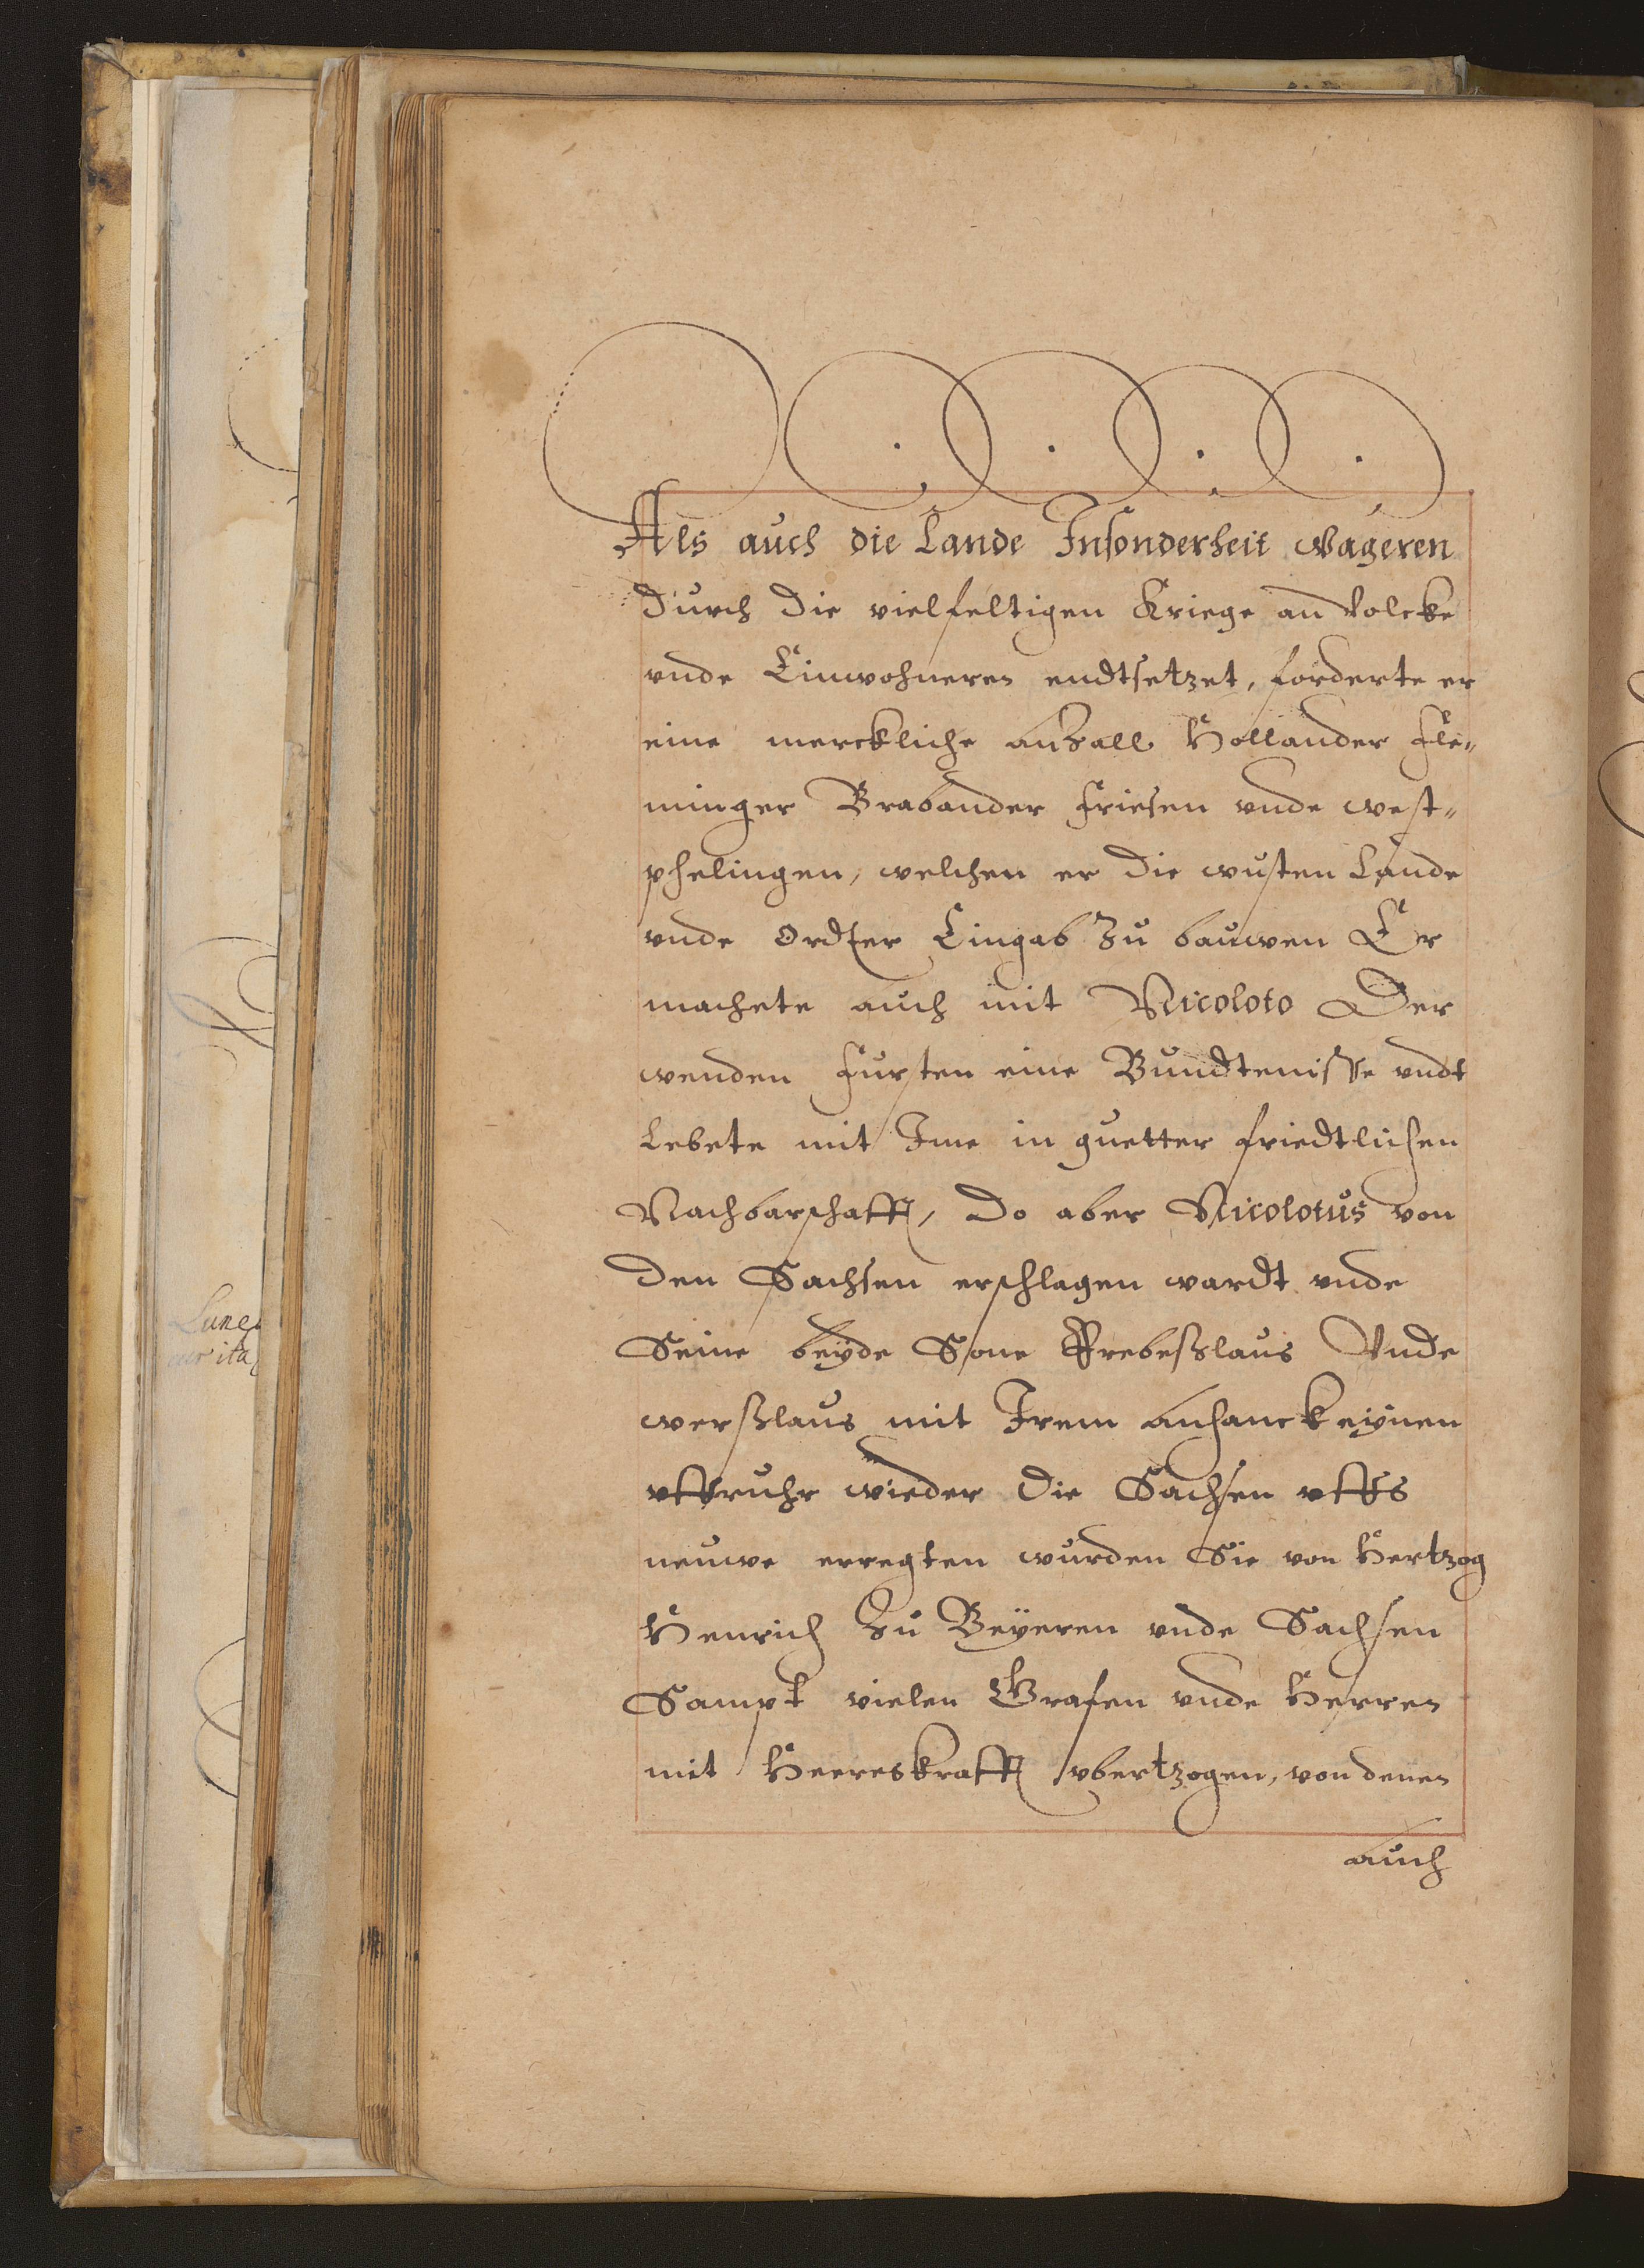 Als auch die Lande Insonderheit wageren
durch die vielfeltigen Kriege an volcke
vnde Einwohneren endtsetzet, forderte er
eine merckliche anzall Hollander Fle„
minger Brabander Friesen vnde west„
phelingen, welchen er die wusten Lande
vnde ordter Eingab zu bauwen Er
machete auch mit Nicoloto Der
wenden Fursten eine Bundtenisse vndt
Lebete mit Ime in guetter friedtlichen
Nachbarschafft, Do aber Nicolotus von
den Sachsen erschlagen wardt vnde
Seine beyde Sone Prebeßlaus Vnde
werßlaus mit Irem anhanck eÿnen
vffruhr wieder die Sachsen vffs
neuwe erregten wurden Sie von Hertzog
Henrich zu Beÿeren vnde Sachsen
Sampt vielen Grafen vnde Herren
mit Heereskrafft vbertzogen, von denen
auch
Lune
ita